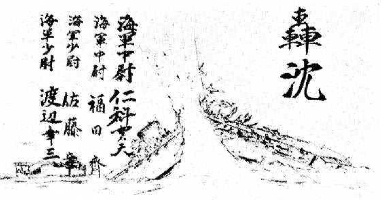 轟沈
海軍中尉 仁科関夫
海軍中尉 福田 齊
海軍少尉 佐藤 章
海軍少尉 渡辺幸三